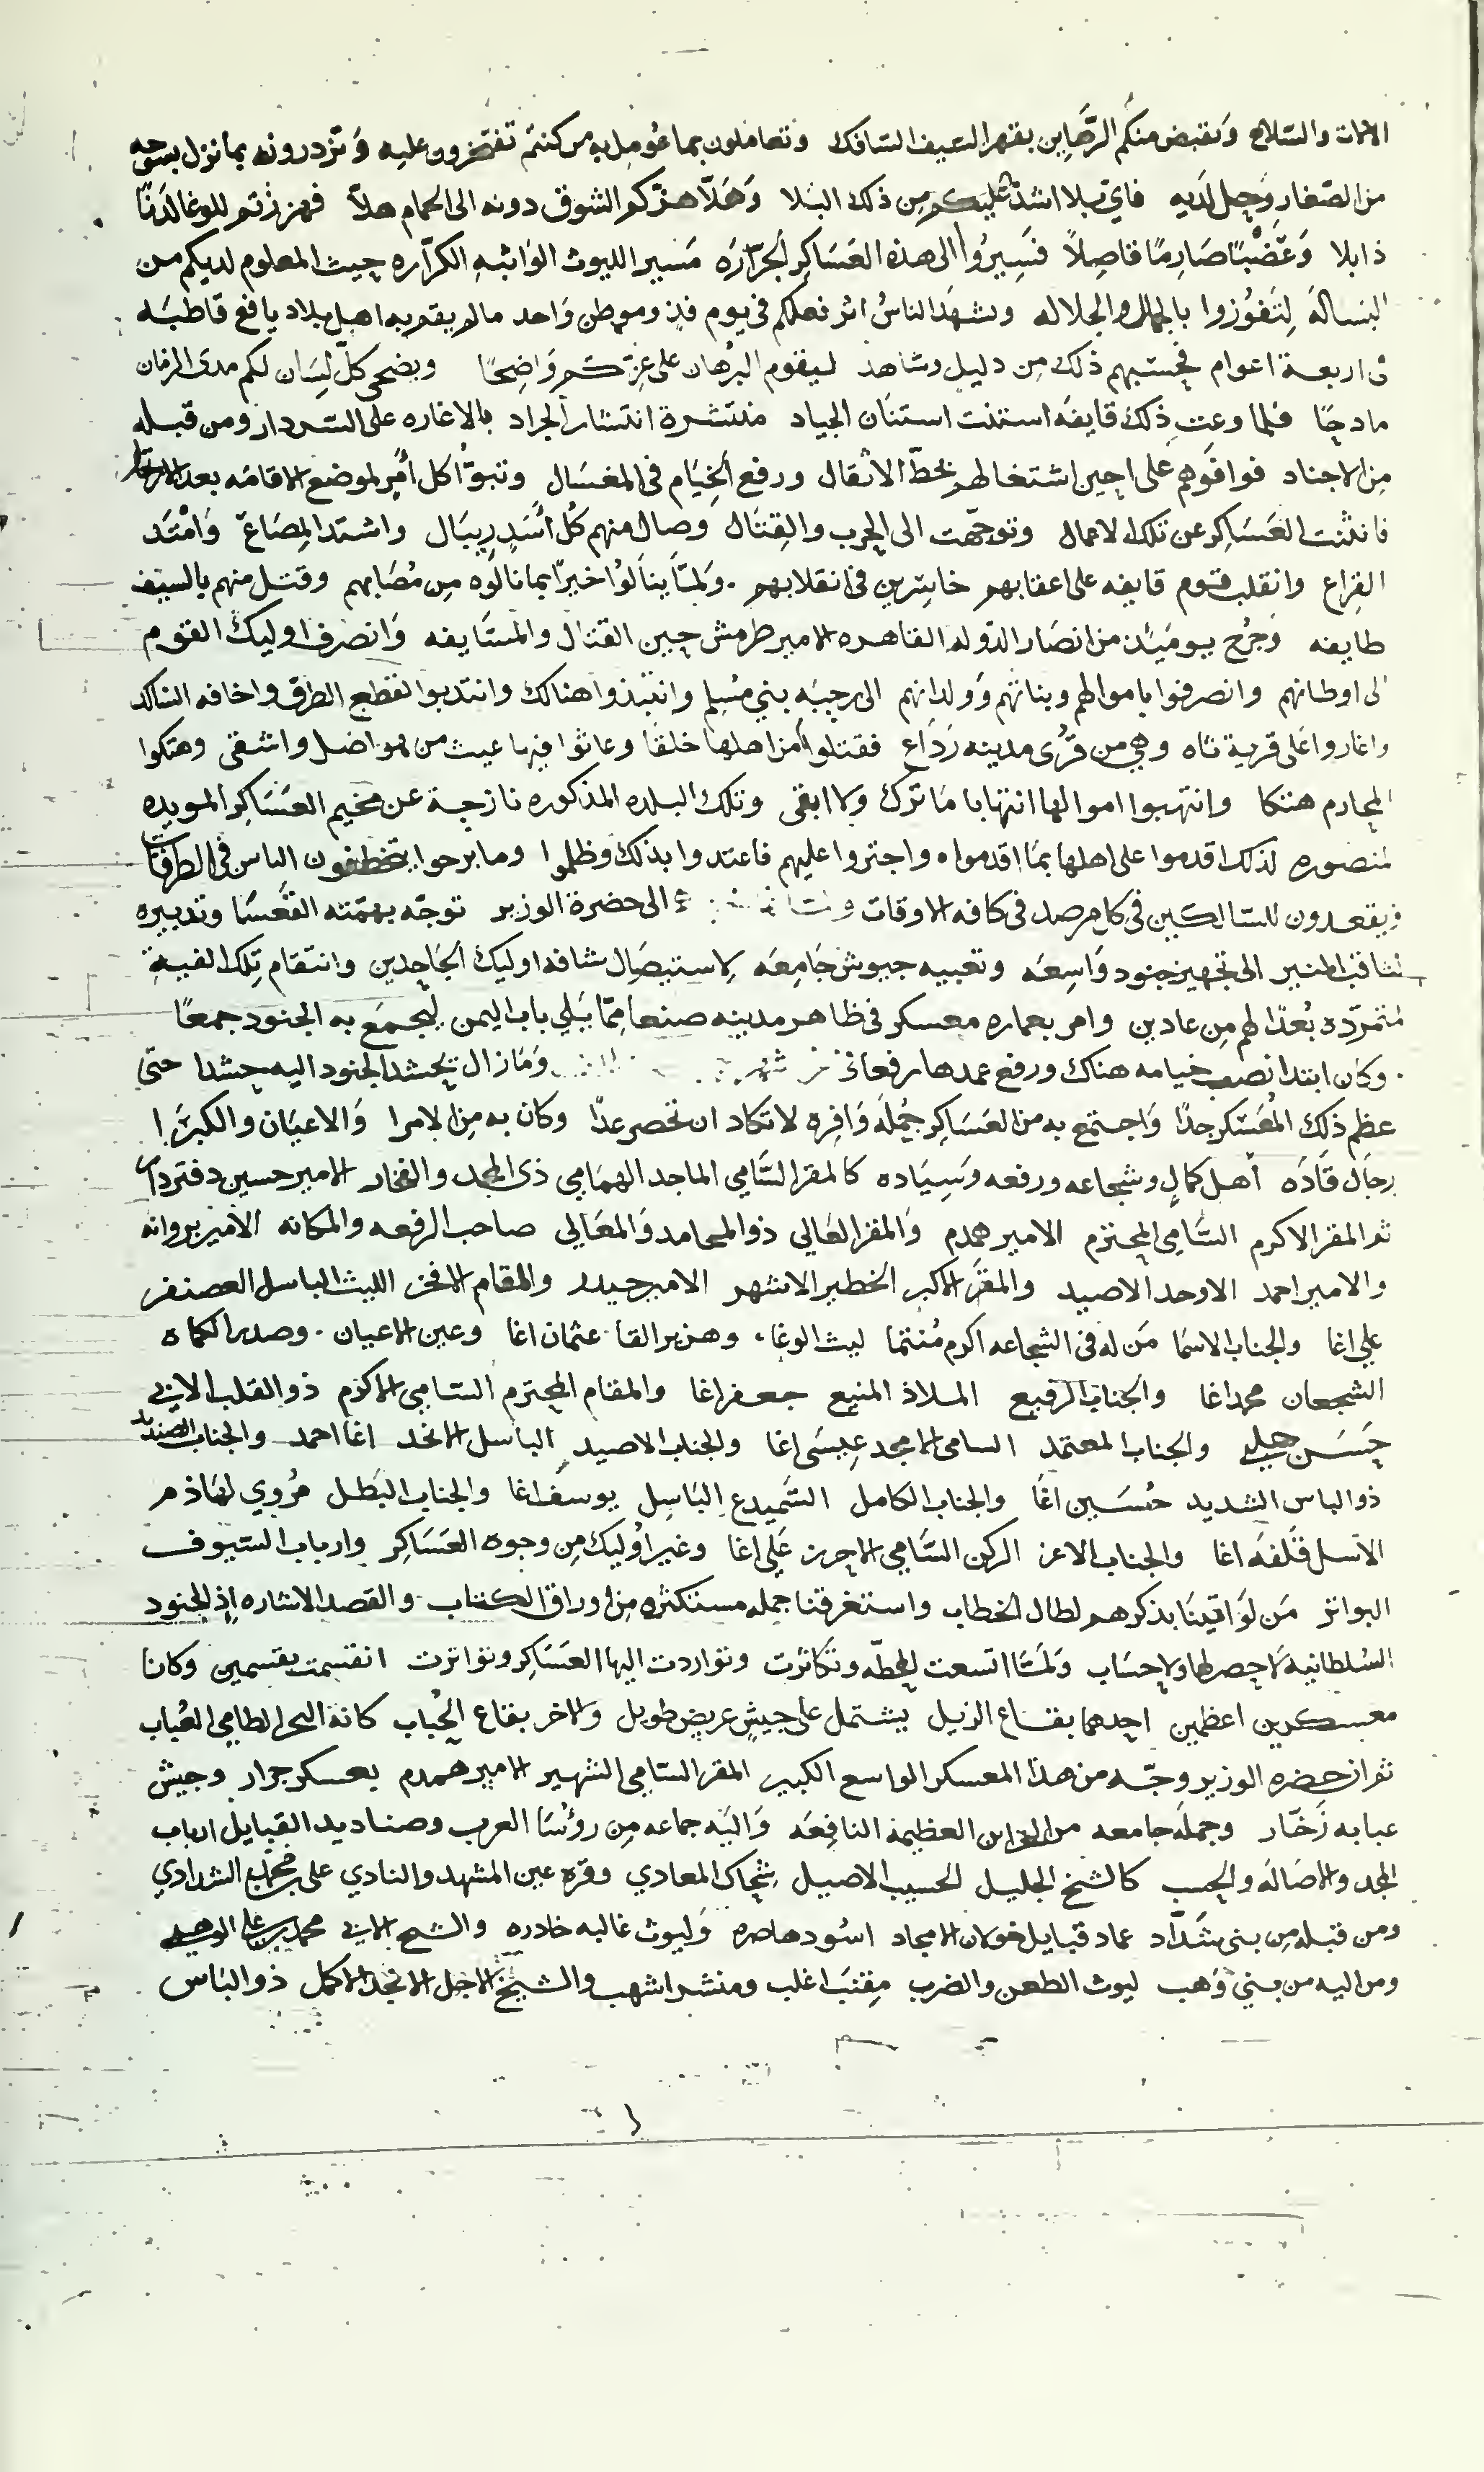 الالات والسلاح وتقبض منكم الرهاين بقهر السيف السافك وتعاملون بما عومل به من كنتم تفتخرون عليه وتزدرونه بما نزل بسوحه
من الصغار وحل لديه فاي بلا اشد عليكم من ذلك البلا وهلا هزكم الشوق دونه الى الحمام هلا فهززتم للوغا لدنا
ذابلا وعضبا صارما قاصلا فسيروا الى هذه العساكر الجراره مسير الليوث الواثبه الكراره حيث المعلوم لديكم من
البسالة لتفوزوا بالجلاله ويشهد الناس اثر فعلكم في يوم فذ وموطن واحد ما لم يقم به اهل بلاد يافع قاطبه
في اربعة اعوام فحسبهم ذلك من دليل وشاهد ليقوم البرهان على عزتكم واضحا ويضحى كل لسان لكم مدى الزمان
مادحا فلما وعت ذلك قايفه استنت استنان الجياد منتشرة انتشار الجراد بالاغاره على السردار ومن قبله
من الاجناد فوافوهم على حين اشتغالهم بحط الاثقال ورفع الخيام في المغسال وتبوا كل امير لموضع الاقامه بعد الارتحال
فانثنت العساكر عن تلك الاعمال وتوجهت الى الحرب والقتال وصال منهم كل اسد ريبال واشتد المصاع وامتد
القراع وانقلب قوم قايفه على اعقابهم خاسرين في انقلابهم ولما ينالوا خيرا بما نالوه من مصابهم وقتل منهم بالسيف
طايفه وجرح يوميذ من انصار الدوله القاهره الامير طرمش حين القتال والمسايفه وانصرف اوليك القوم
الى اوطانهم وانصرفوا باموالهم وبناتهم وولدانهم الى رحبه بني مسلم وانتبذوا هنالك وانتدبوا لقطع الطرق واخافه السالك
واغاروا على قرية ثاه وهي من قرى مدينه رداع فقتلوا من اهلها خلقا وعاثوا فيها عيث من هو اضل واشقى وهتكوا
المحارم هتكا وانتهبوا اموالها انتهابا ما ترك ولا ابقى وتلك البلده المذكوره نازحة عن مخيم العساكر المويده
المنصوره لذلك اقدموا على اهلها بما اقدموا ه واجتروا عليهم فاعتدوا بذلك وظلموا وما برحوا يتخطفون الناس في الطرقات
ويقعدون للسالكين في كل مرصد في كافه الاوقات الى حضرة الوزير توجه بهمته القعسا وتدبيره
الثاقب المنير الى تجهيز جنود واسعه وتعبيه جيوش جامعه لاستيصال شافه اوليك الجاحدين وانتقام تلك الفية
المتمرده بعدا لهم من عادين وامر بعماره معسكر في ظاهر مدينه صنعا مما يلي باب اليمن ليجمع به الجنود جمعا
وكان ابتدا نصب خيامه هناك ورفع عمدها رفعا في شهر وما زال يحشد الجنود اليه حشدا حتى
عظم ذلك المعسكر جدا واجتمع به من العساكر جمله وافره لا تكاد ان تحصر عدا وكان به من الامرا والاعيان والكبرا
رجال قاده اهل كمال وشجاعه ورفعه وسياده كالمقر السامي الماجد الهمامي ذي المجد والفخار الامير حسين دفتردار
ثم المقر الاكرم السامي المحترم الامير همدم والمقر العالي ذو المحامد والمعالي صاحب الرفعه والمكانه الامير بروانه
والامير احمد الاوحد الاصيد والمقر الاكبر الخطير الاشهر الامير حيدر والمقام الافخر الليث الباسل الغضنفر
علي اغا والجناب الاسما من له في الشجاعه اكرم منتما ليث الوغا وهزبر القا عثمان اغا وعين الاعيان وصدر الكماه
الشجعان محمد اغا والجناب الرفيع الملاذ المنيع جعفر اغا والمقام المحترم السامي الاكرم ذو القلب الابي
حسن جلبي والجناب المعتمد السامي الامجد عيسى اغا والجناب الاصيد الباسل الانجد اغا احمد والجناب الصنديد
ذو الباس الشديد حسين اغا والجناب الكامل السميدع الباسل يوسف اغا والجناب البطل مروي لهاذم
الاسل قلفه اغا والجناب الاعز الركن السامي الاحرز علي اغا وغير اوليك من وجوه العساكر وارباب السيوف
البواتر من لو اقينا بذكرهم لطال الخطاب واستغرقنا جمله مستكثره من اوراق الكتاب والقصد الاشاره اذ الجنود
السلطانيه لا حصر لها ولا حساب ولما اتسعت المحطه وتكاثرت وتواردت اليها العساكر وتواترت انقسمت بقسمين وكانا
معسكرين اعظمين احدهما بقاع الزيل يشتمل على جيش عريض طويل والاخر بقاع الحباب كانه البحر الطامي العباب
ثم ان حضره الوزير وجه من هذا المعسكر الواسع الكبير المقر السامي الشهير الامير همدم بعسكر جرار وجيش
عبابه زخار وجمله جامعه من الخزاين العظيمة النافعه واليه جماعه من روسا العرب وصناديد القبايل ارباب
المجد والاصاله والحسب كالشيخ الجليل الحسيب الاصيل شحاك المعادي وقره عين المشهد والنادي علي بن محمد الشدادي
ومن قبله من بني شداد عماد قبايل خولان الامجاد اسود هاصره وليوث غالبه خادره والشيخ الابي محمد بن علي الوهبي
ومن اليه من بني وهب ليوث الطعن والضرب مقنب اغلب ومنشر اشهب والشيخ الاجل الانجد الاكمل ذو الباس